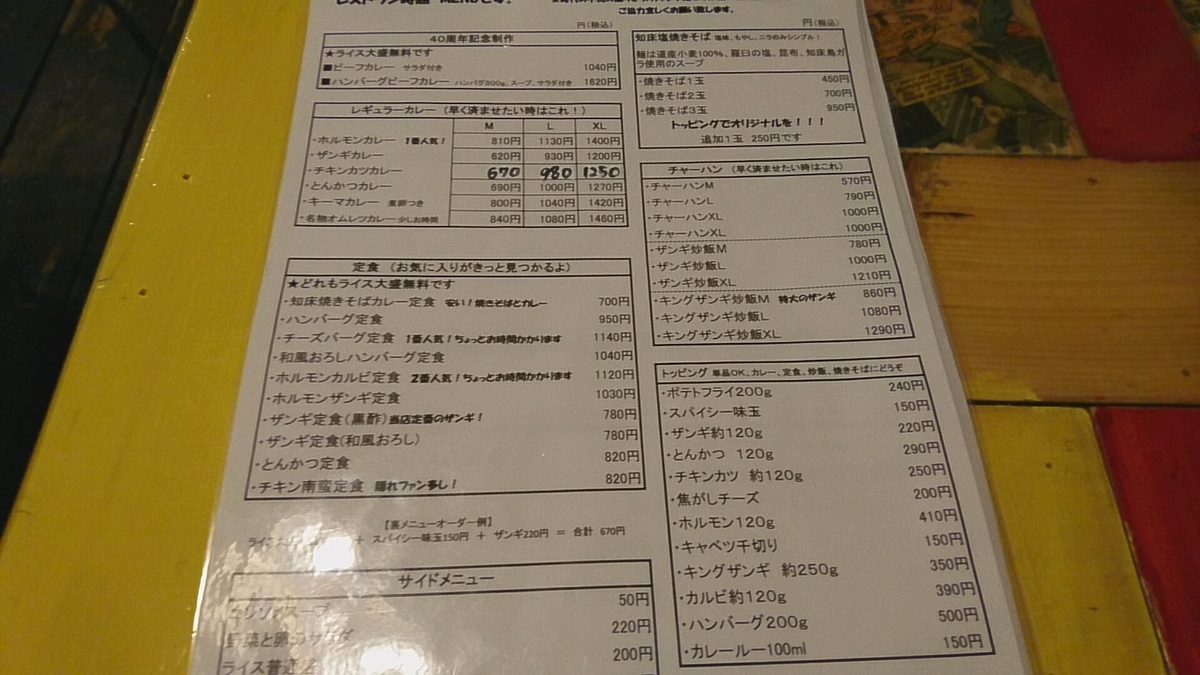 MENUです。
ご協力宜しくお願い致します。
円(税込)
40周年記念制作
★ライス大盛無料です
■ビーフカレー サラダ付き 1040円
■ハンバーグビーフカレー ハンバグ300g、スープ、サラダ付き 1620円
レギュラーカレー (早く済ませたい時はこれ!)
M L XL
・ホルモンカレー 1番人気! 810円 1130円 1400円
・ザンギカレー 620円 930円 1200円
・チキンカツカレー 670 980 1250
・とんかつカレー 690円 1000円 1270円
・キーマカレー 煮卵つき 800円 1040円 1420円
・名物オムレツカレー 少しお時間 840円 1080円 1460円
定食 (お気に入りがきっと見つかるよ)
★どれもライス大盛無料です
・知床焼きそばカレー定食 安い!焼きそばとカレー 700円
・ハンバーグ定食 950円
・チーズバーグ定食 1番人気!ちょっとお時間かかります 1140円
・和風おろしハンバーグ定食 1040円
・ホルモンカルビ定食 2番人気!ちょっとお時間かかります 1120円
・ホルモンザンギ定食 1030円
・ザンギ定食(黒酢)当店定番のザンギ! 780円
・ザンギ定食(和風おろし) 780円
・とんかつ定食 820円
・チキン南蛮定食 隠れファン多し! 820円
【裏メニューオーダー例】
+ スパイシー味玉150円 + ザンギ220円 = 合計 670円
サイドメニュー
50円
野菜と卵のサラダ 220円
ライス普通 200円
円(税込)
知床塩焼きそば 塩味、もやし、ニラのみシンプル!
麺は道産小麦100%、羅臼の塩、昆布、知床鳥ガ
ラ使用のスープ
・焼きそば1玉 450円
・焼きそば2玉 700円
・焼きそば3玉 950円
トッピングでオリジナルを!!!
追加1玉 250円です
チャーハン (早く済ませたい時はこれ)
・チャーハンM 570円
・チャーハンL 790円
・チャーハンXL 1000円
・チャーハンXL 1000円
・ザンギ炒飯M 780円
・ザンギ炒飯L 1000円
・ザンギ炒飯XL 1210円
・キングザンギ炒飯M 特大のザンギ 860円
・キングザンギ炒飯L 1080円
・キングザンギ炒飯XL 1290円
トッピング 単品OK、カレー、定食、炒飯、焼きそばにどうぞ
・ポテトフライ200g 240円
・スパイシー味玉 150円
・ザンギ約120g 220円
・とんかつ 120g 290円
・チキンカツ 約120g 250円
・焦がしチーズ 200円
・ホルモン120g 410円
・キャベツ千切り 150円
・キングザンギ 約250g 350円
・カルビ約120g 390円
・ハンバーグ200g 500円
・カレールー100ml 150円